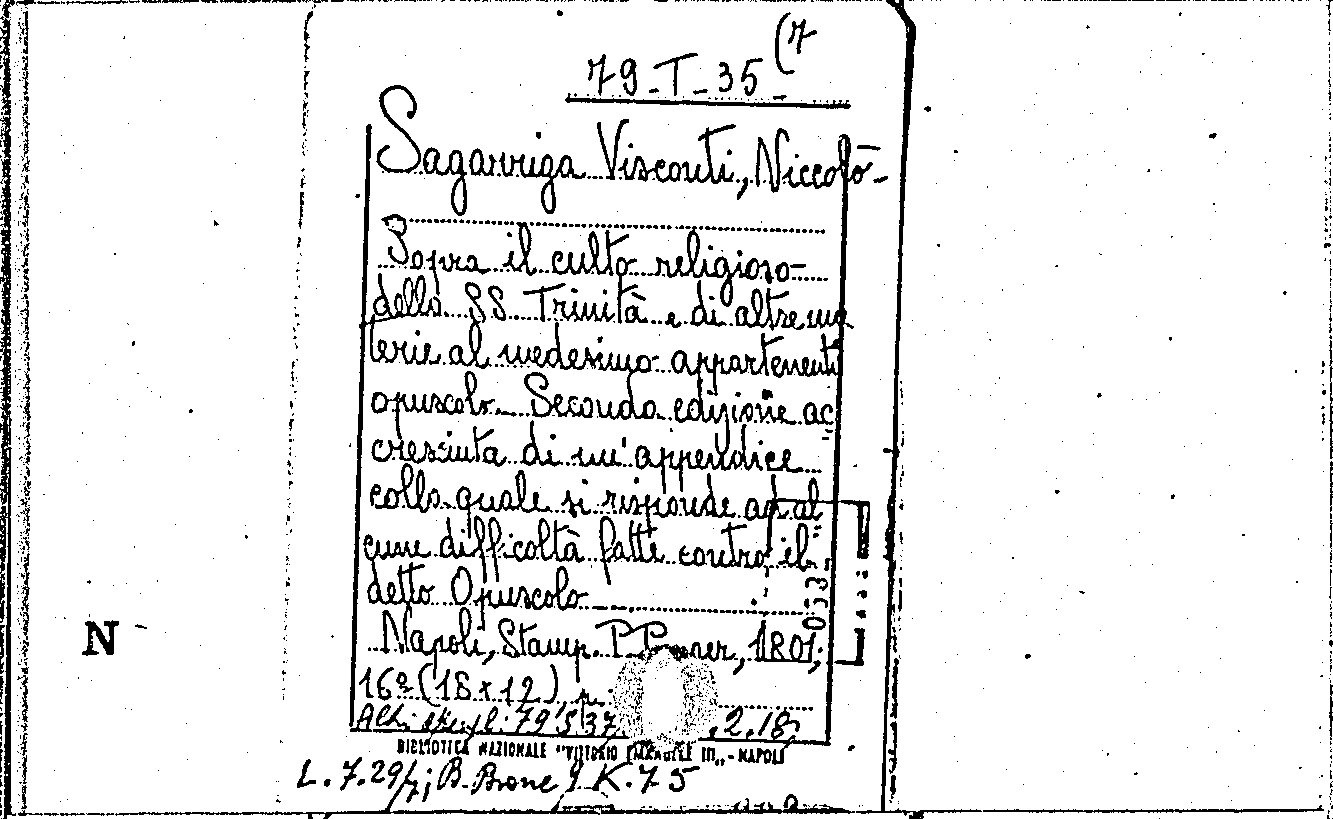 79-T-35 (7
Sagarriga Visconti, Niccolò-
Sopra il culto religioso
della SS Trinità e di altre ma
terie al medesimo appartenenti
opuscolo. Seconda edizione ac
cresciuta di un' appendice
colla quale si risponde ad al
cune difficoltà fatte contro il
detto Opuscolo
Napoli, Stamp. P. 1801,
16º (18x12) p.
79 2.18.
BIBLIOTECA NAZIONALE "VITTORIO EMANUELE III„ - NAPOLI
L. 7.29/7; B. K. 75
N
033